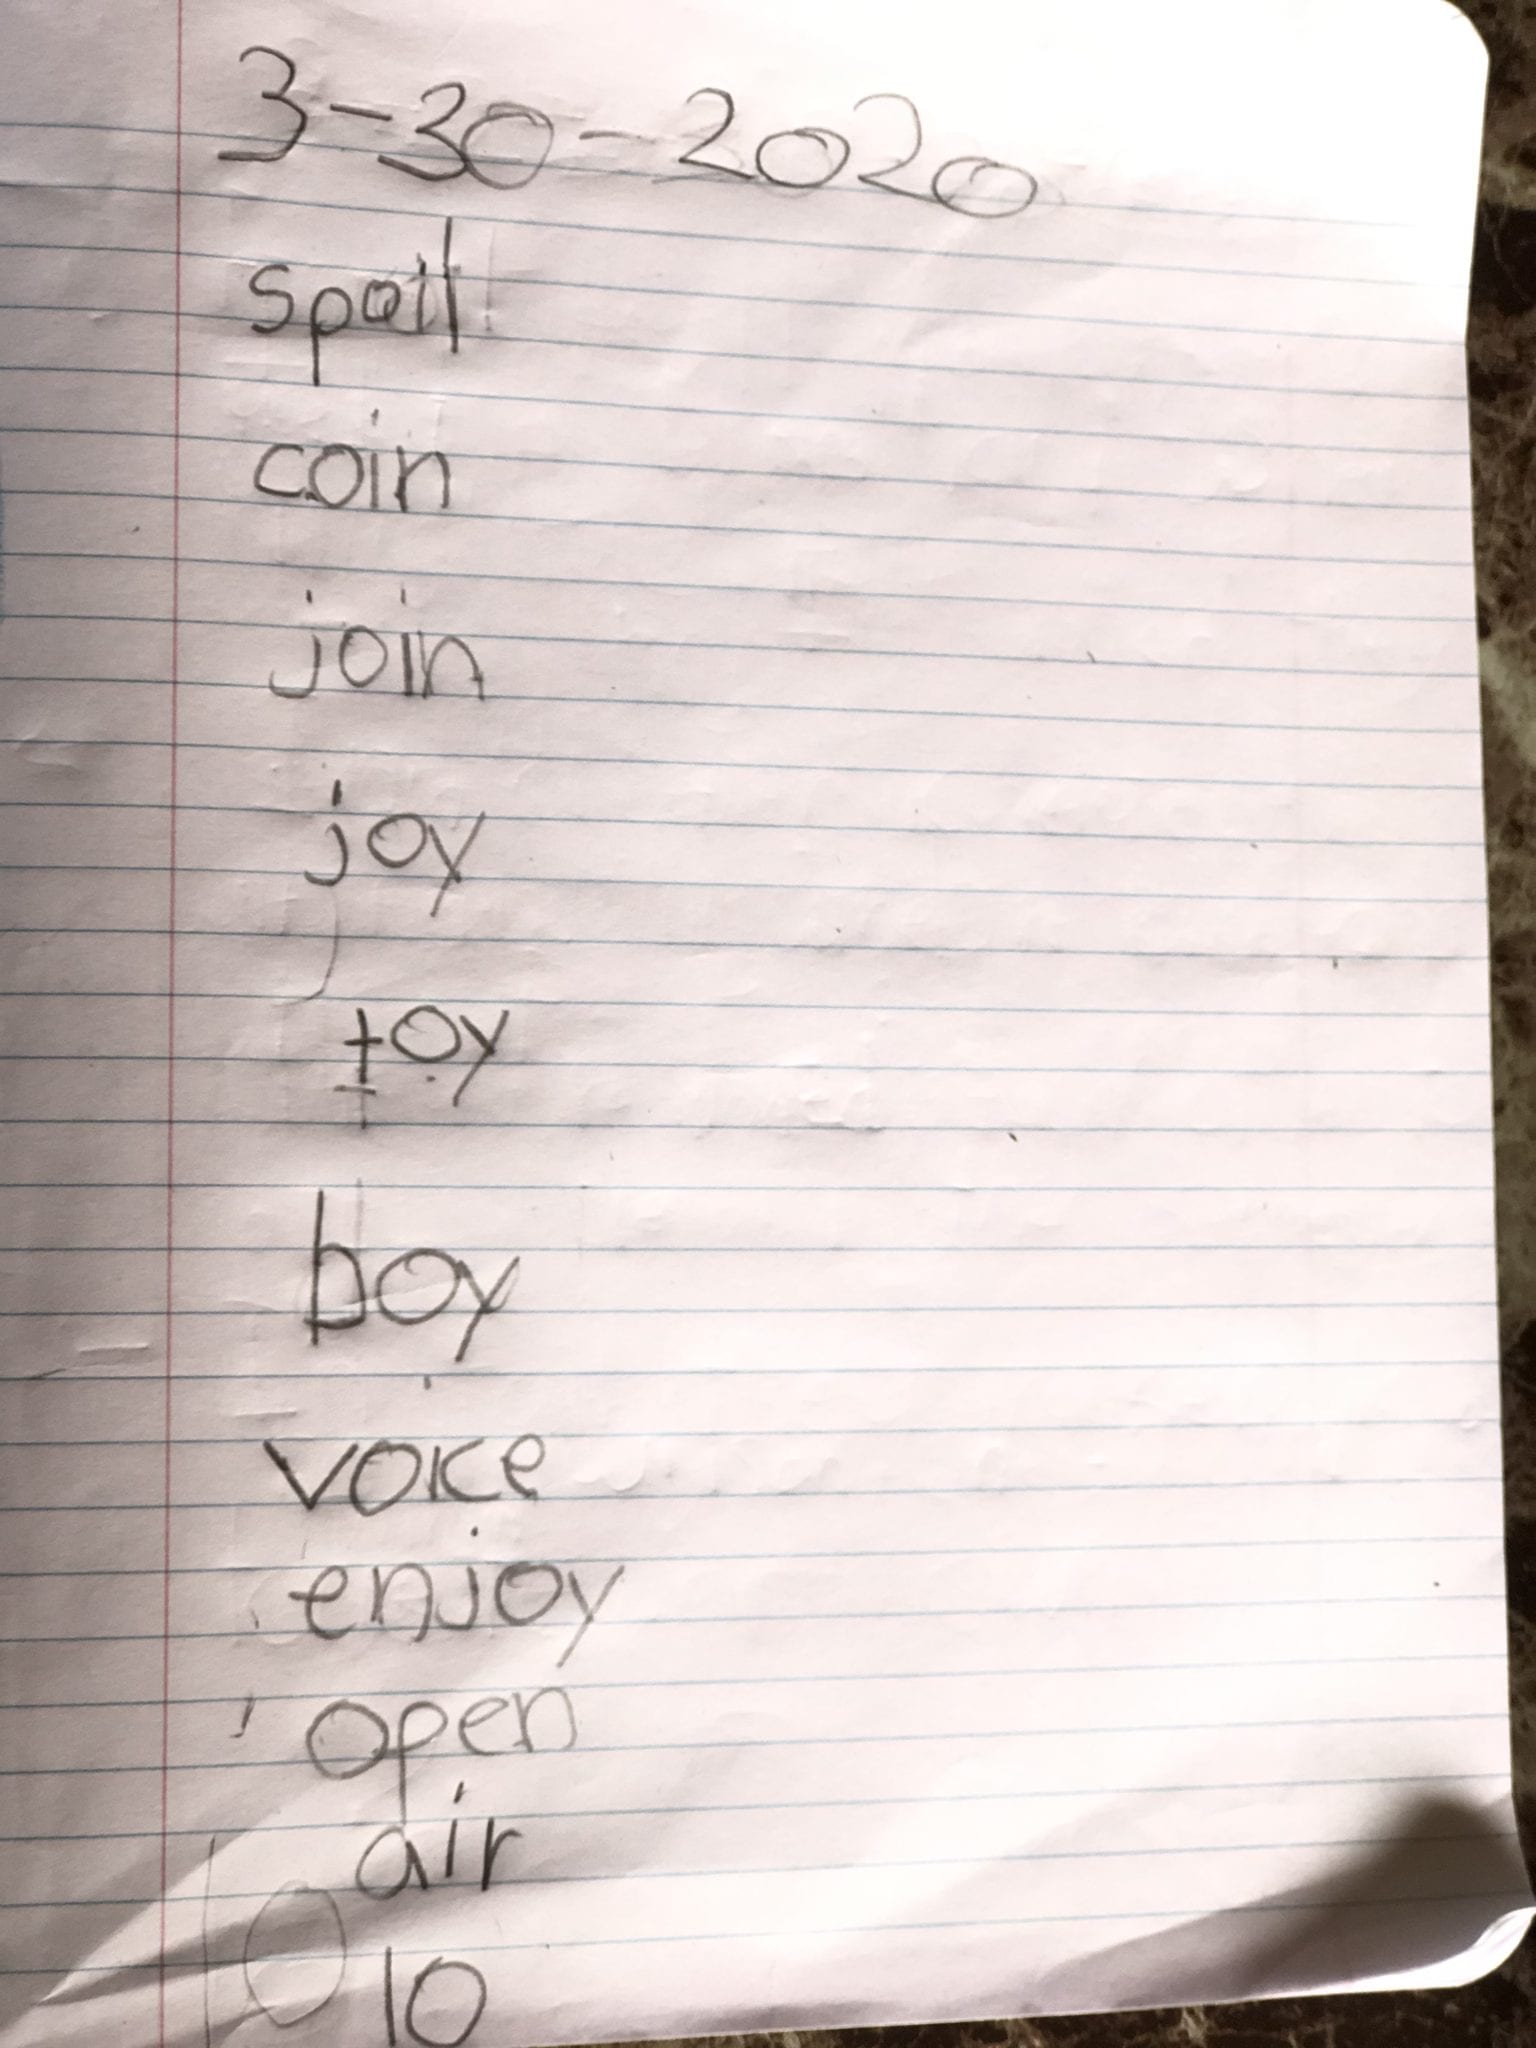 3-30-2020
spoil
coin
join
joy
toy
boy
voice
enjoy
open
air
10